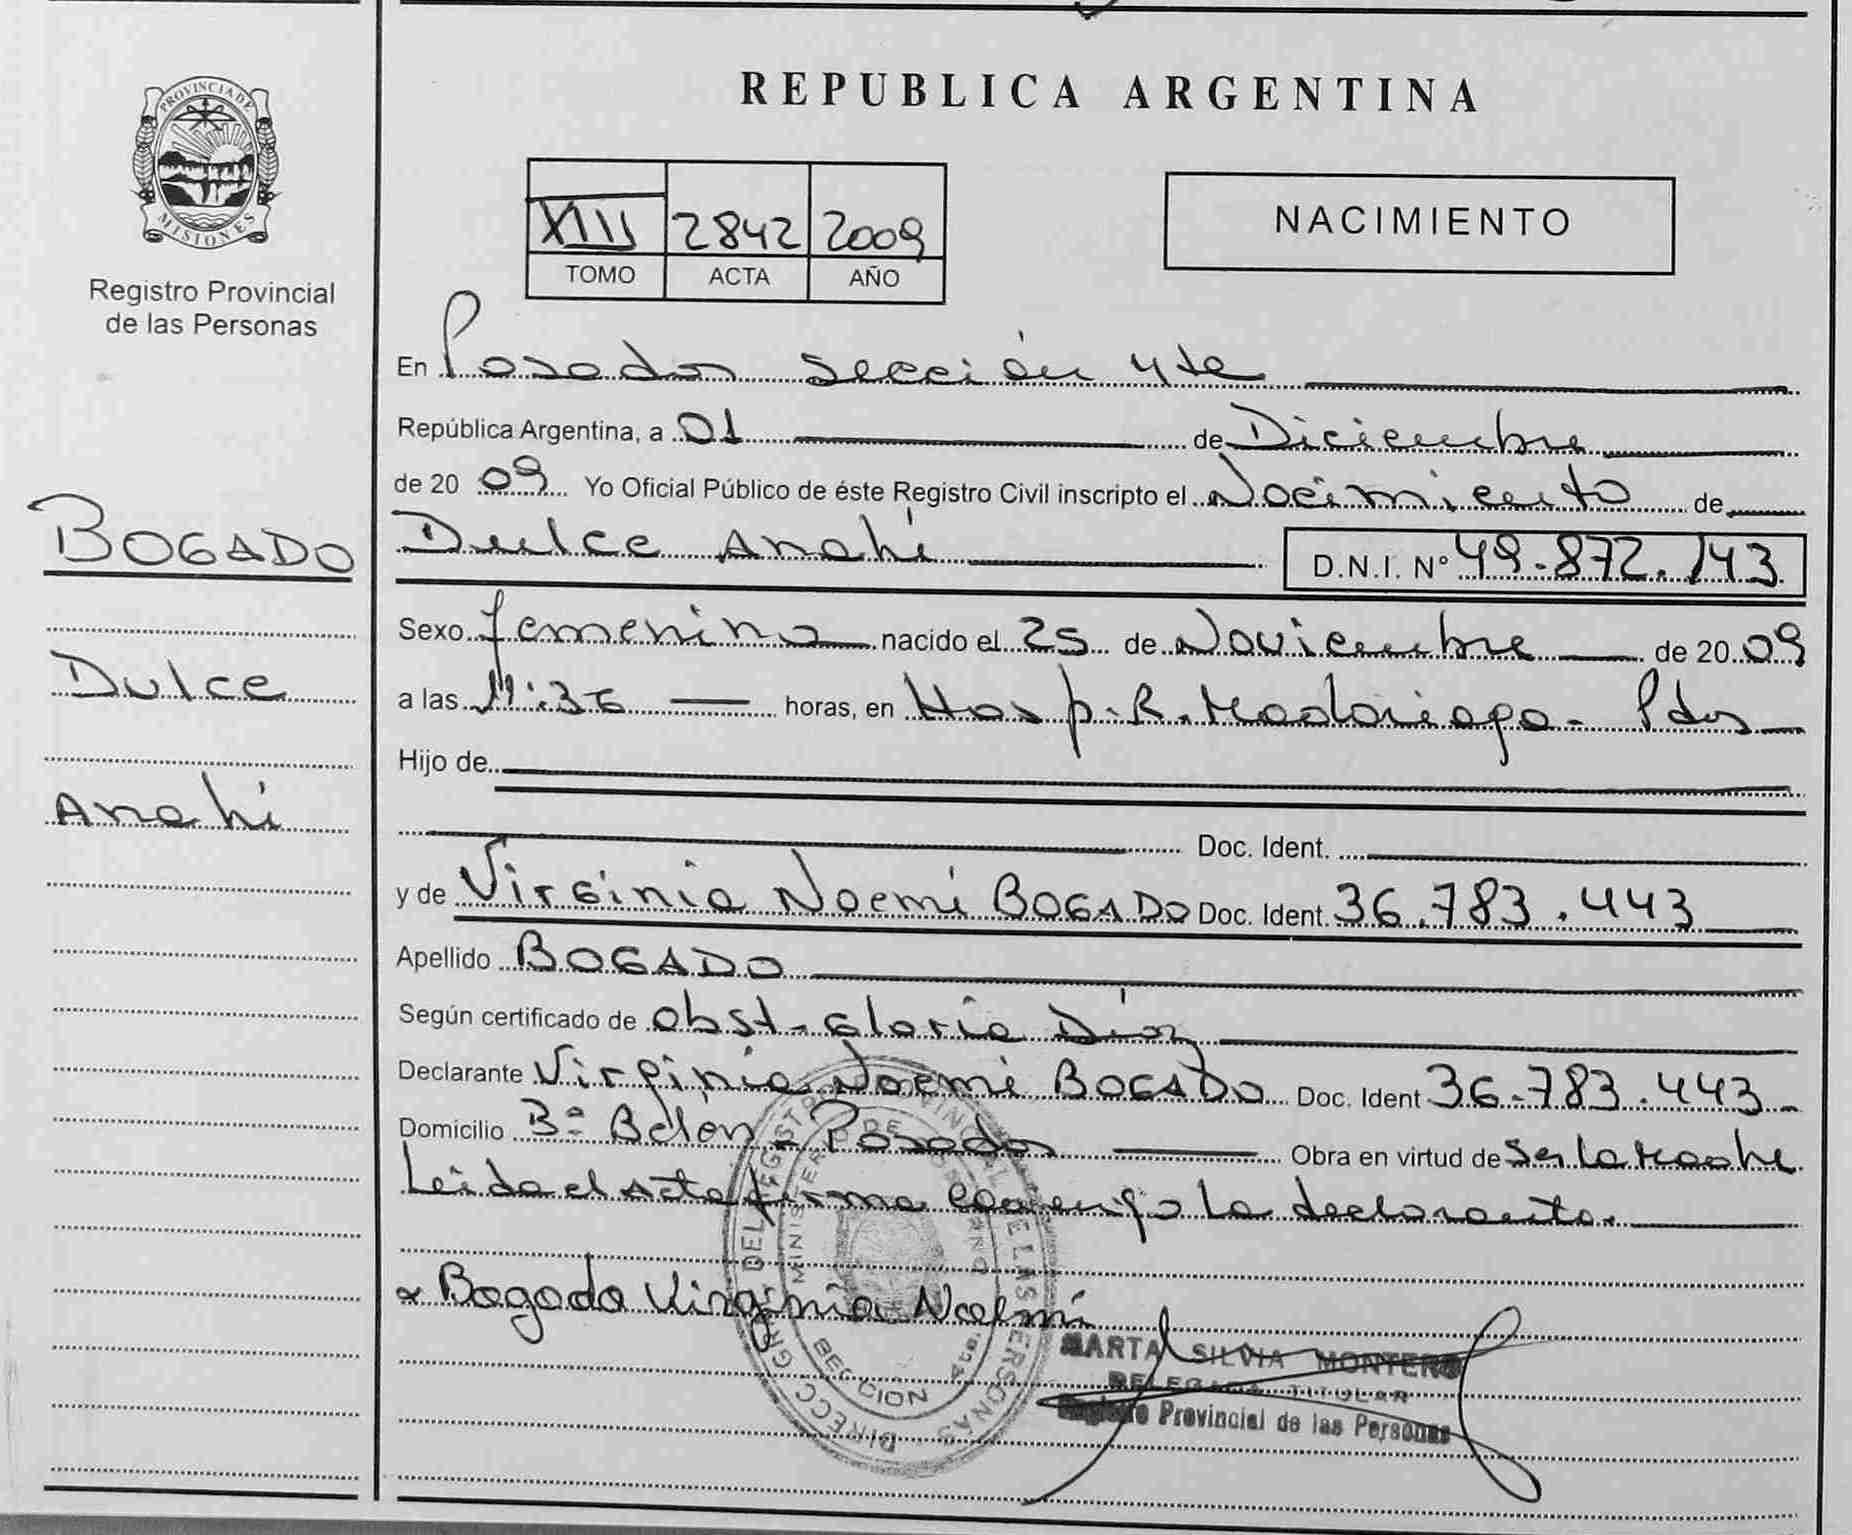 REPUBLICA ARGENTINA
PROVINCIA DE
MISIONES
Registro Provincial
de las Personas
XIII 2842 2009
TOMO ACTA AÑO
NACIMIENTO
BOGADO
Dulce
Anahí
En Posadas sección 4ta
República Argentina, a 01 de Diciembre
de 20 09 Yo Oficial Público de éste Registro Civil inscripto el Nacimiento de
Dulce Anahí D.N.I. Nº 49.872.143
Sexo femenino nacido el 25 de Noviembre de 20 09
a las 11:36 horas, en Hosp. R. Madariaga - Pdas
Hijo de
Doc. Ident.
y de Virginia Noemí BOGADO Doc. Ident. 36.783.443
Apellido BOGADO
Según certificado de obst. Gloria Díaz
Declarante Virginia Noemí BOGADO Doc. Ident 36.783.443
Domicilio Bº Belén - Posadas Obra en virtud de ser la Madre
Leída el acta firma conmigo la declarante.
Bogado Virginia Noemí
MARTA SILVIA MONTERO
DELEGADA TITULAR
Registro Provincial de las Personas